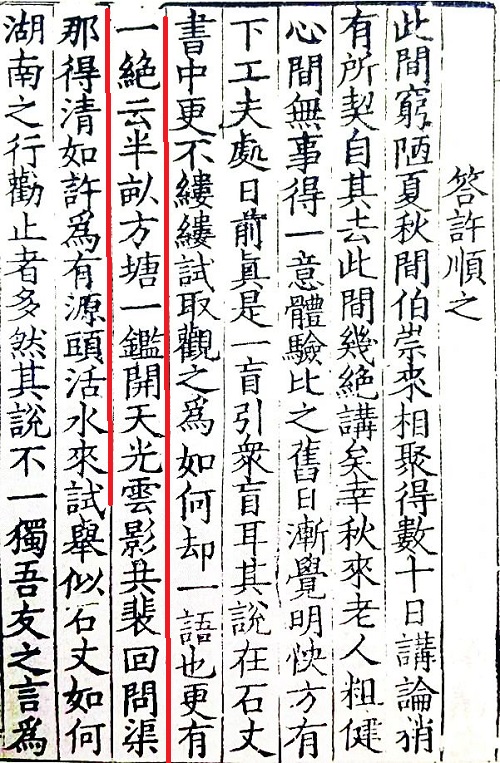 答許順之
此間窮陋夏秋間伯崇來相聚得數十日講論稍
有所契自其去此間幾絕講矣幸秋來老人粗健
心間無事得一意體驗比之舊日漸覺明快方有
下工夫處日前眞是一盲引衆盲耳其說在石丈
書中更不縷縷試取觀之爲如何却一語也更有
一絕云半畝方塘一鑑開天光雲影共裴回問渠
那得清如許爲有源頭活水來試舉似石丈如何
湖南之行勸止者多然其說不一獨吾友之言爲